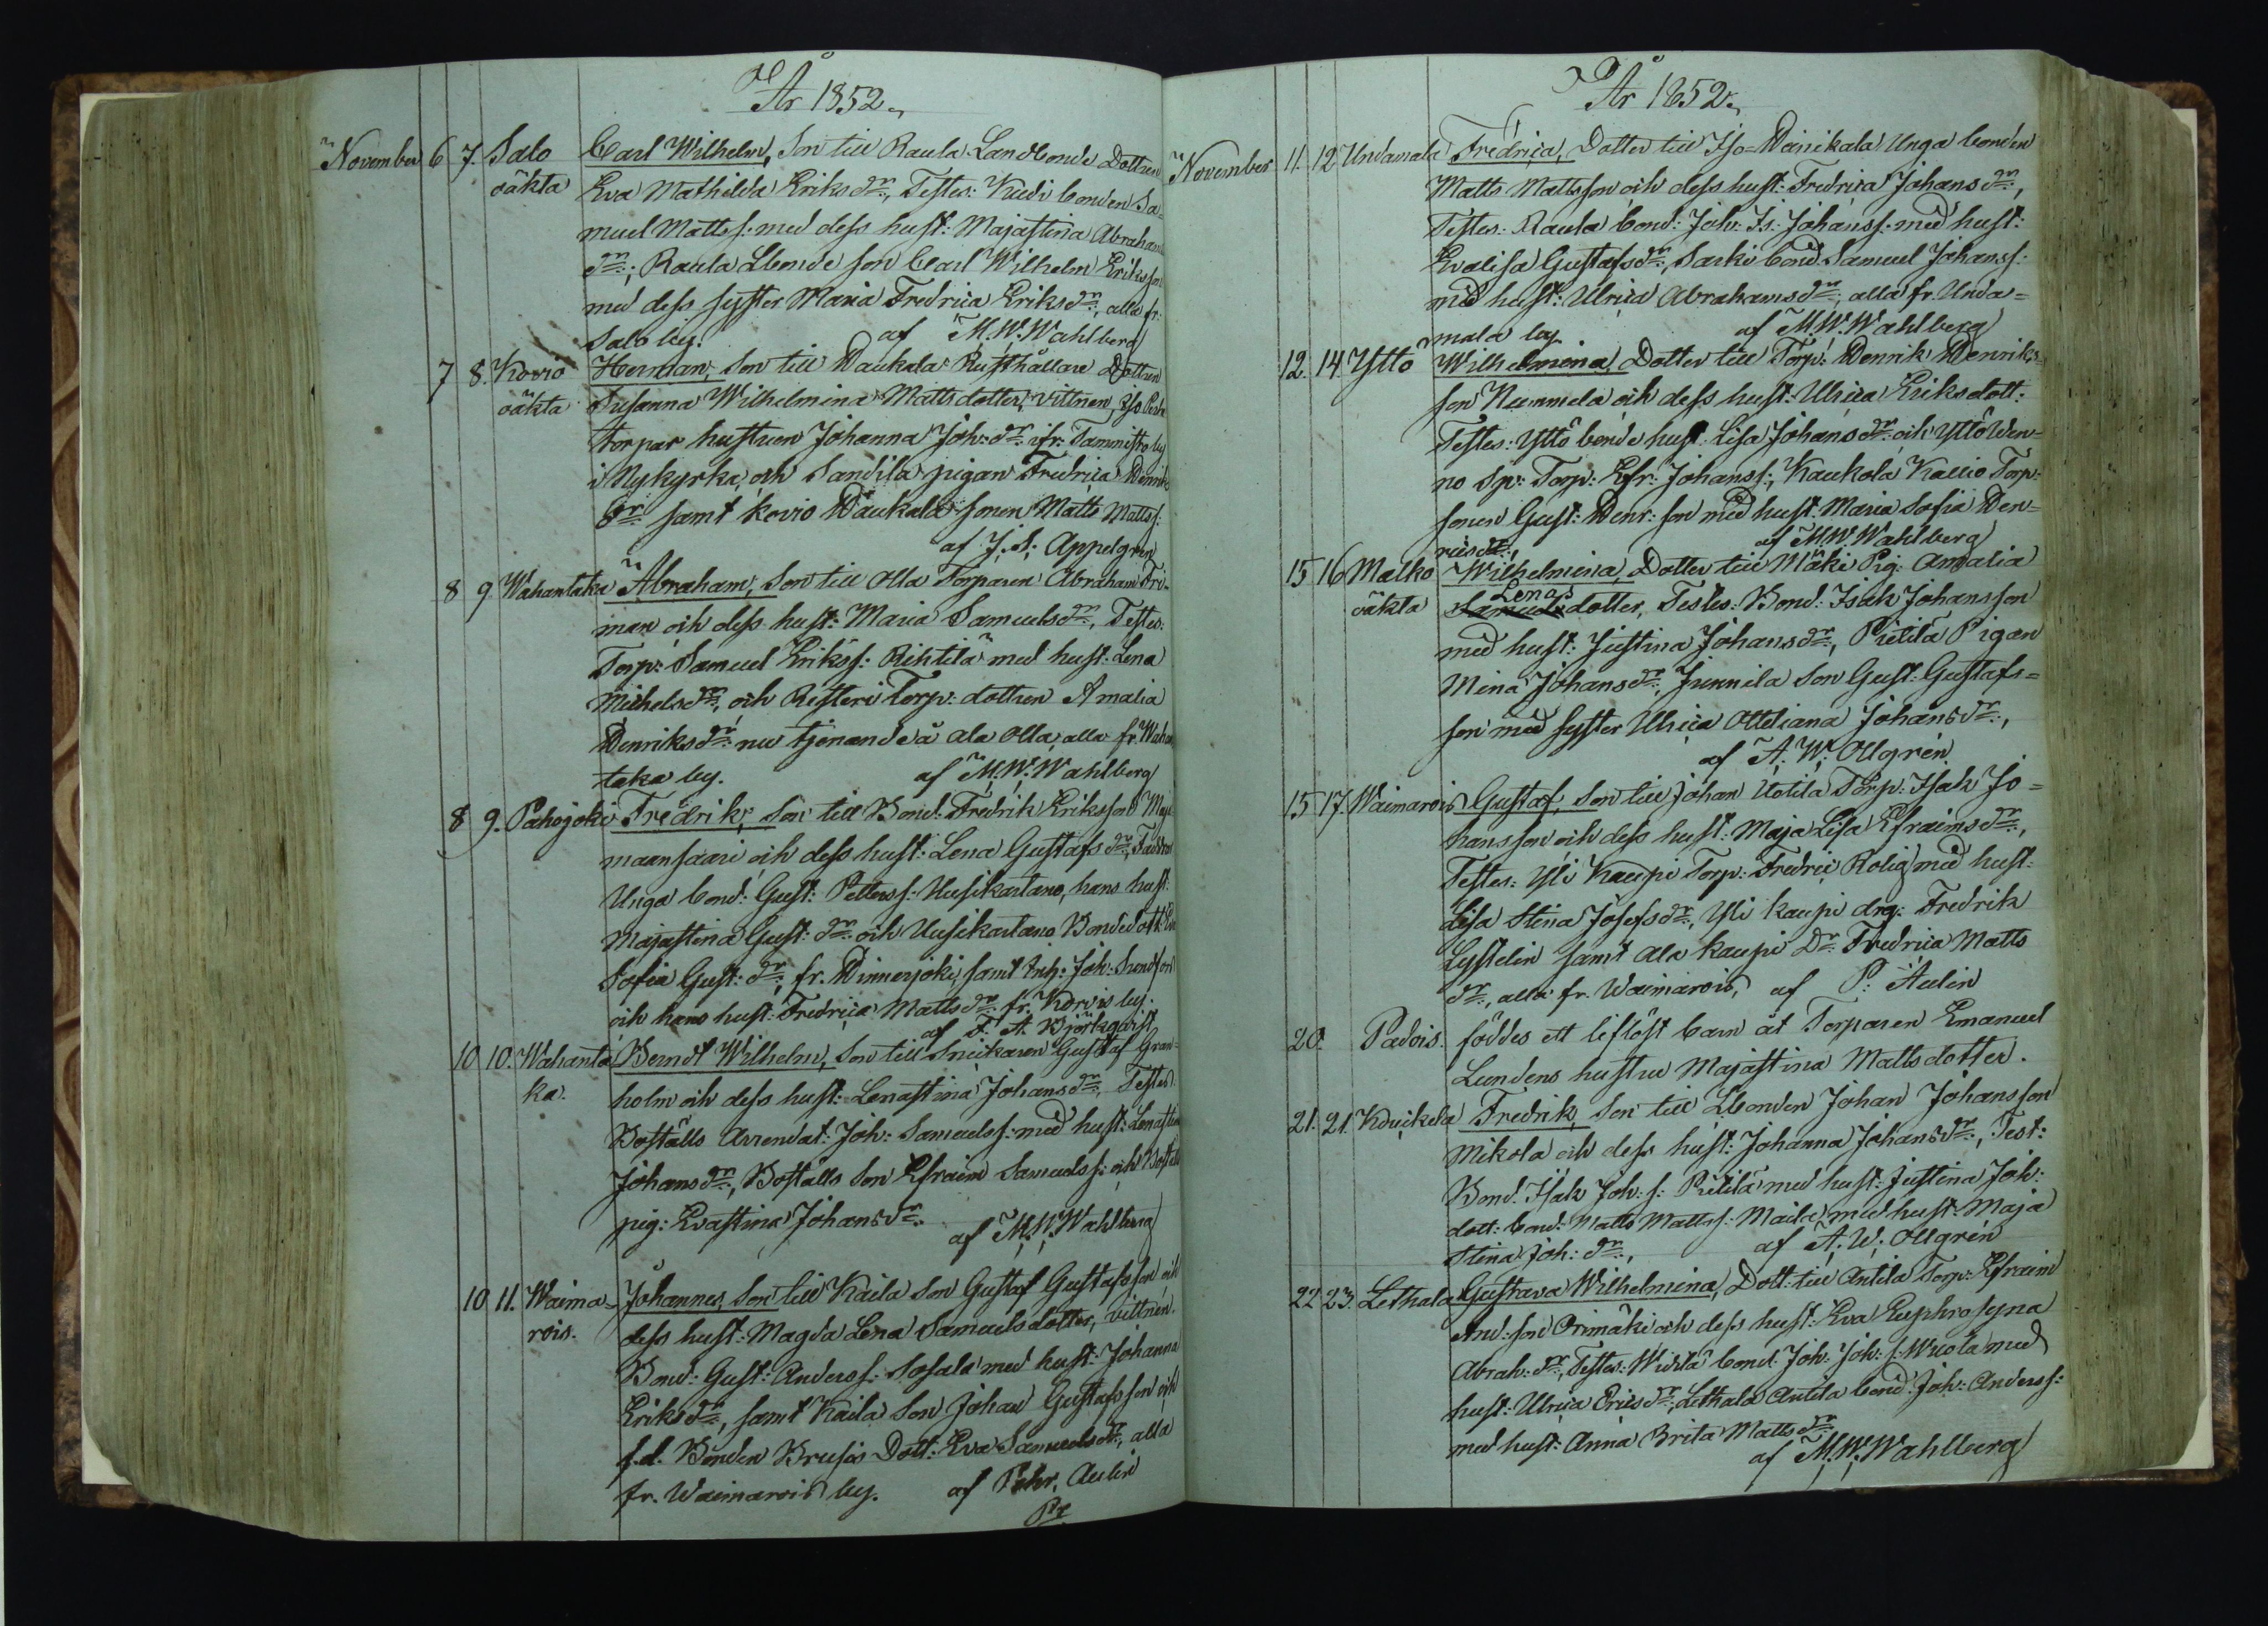 År 1852.
November 6 7. Salo Carl Wilhelm, Son till Raula Landbonde Dottren
oäkta Eva Mathilda Eriksdr:, Testes: Kuedi bonden Sa=
muel Mattss. med dess hust: Majastina Abrahams
dr:; Raula Lbonde son Carl Wilhelm Eriksson
med dess syster Maria Fredrica Eriksdr:, alla fr.
Salo by. af M. W. Wahlberg
7 8. Kovio Herman, Son till Daukala Rusthållare Dottren
oäkta Susanna Wilhelmina Mattsdotter, vittnen,
torpar hustrun Johanna Joh: dr: ifr. Tammisto by
i Nykyrka, och Sandila pigan Fredrica Henriks
dr: samt Kovio Daukala sonen Matts Mattss:
af J. S. Appelgren
8 9 Wahantaka Abraham, Son till Olla Torparen Abraham Fri-
man och dess hust: Maria Samuelsdr:, Testes:
Torp: Samuel Erikss: Rihtilä med hust: Lena
Michelsdr:, och Risteri Torp: dottren Amalia
Henriksdr: nu tjenande å Ala Olla, alla fr. Wahan
taka by. af M. W. Wahlberg
8 9. Pahojoki Fredrik, Son till Bond: Fredrik Eriksson
maansaari och dess hust: Lena Gustafsdr:, Faddrar
Unga bond: Gust: Petterss. Uusikartano, hans hust:
Majastina Gust: dr: och Uusikartano Bondedott:
Sofia Gust: dr:, fr. Hinnerjoki, samt Inh: Joh: Sundson
och hans hust: Fredrica Mattsdr: fr. Korvis by.
af F. A. Björkqvist
10 10. Wahanta Berndt Wilhelm, Son till Snickaren Gustaf Gran-
ka. holm och dess hust: Lenastina Johansdr:, Testes.
Boställs Arrendat: Joh: Samuelss: med hust: Lenastina
Johansdr:, Boställs Son Efraim Samuelss: och Boställs
pig: Evastina Johansdr: af M. W. Wahlberg
10 11. Waima- Johannes, Son till Kaila Son Gustaf Gustafsson och
rois. dess hust: Magda Lena Samuelsdotter, vittnen.
Bond: Gust: Anderss: Sosala med hust: Johanna
Eriksdr:, samt Kaila Son Johan Gustafsson och
f.d. Bonden Brusis Dott: Eva Samuelsdr:, alla
fr. Waimarois by. af Pehr. Aulin
År 1852.
November 11. 12 Undamala Fredrica, Dotter till Iso=Heinikala Unga bonden
Matts Mattsson och dess hust: Fredrica Johansdr:,
Testes: Raula bond: Joh: Is: Johanss: med hust:
Evalisa Gustafsdr:, Sarki bond Samuel Johanss:
med hust: Ulrica Abrahamsdr:, alla fr. Unda=
mala by. af M. W. Wahlberg
12. 14. Yttö Wilhelmina, Dotter till Torp: Henrik Henriks=
son Nummela och dess hust: Ulrica Eriksdott:
Testes: Yttö bonde hust: Lisa Johansdr: och Yttö Wen=
no Sp: Torp: Efr: Johanss:, Kaukola Kallio Torp:
sonen Gust: Henr: son med hust: Maria Sofia Hen=
ricsdr:, af M. W. Wahlberg
15 16 Malko Wilhelmina, Dotter till Mäki Pig: Amalia
Lenas
oäkta Samuelsdotter, Testes: Bond: Isak Johansson
med hust: Justina Johansdr:, Pietilä Pigan
Mina Johansdr:, Junnila Son Gust: Gustafs=
son med syster Ulrica Ottiliana Johansdr:,
af A. W. Ollgrén
15 17. Waimarois Gustaf, Son till Johan Uotila Torp: Isak Jo=
hansson och dess hust: Maja Lisa Efraimsdr:,
Testes: Yli Kaupi Torp: Fredric Rolig med hust:
Lisa Stina Josefsdr:, Yli Kaupi drg: Fredrik
Lystelin samt Ala Kaupi Dr: Fredrica Matts
dr:, alla fr. Waimarois, af P. Aulin
20. Padois. föddes ett liflöst barn åt Torparen Emanuel
Lundens hustru Majastina Mattsdotter.
21. 21. Koukela Fredrik, Son till Lbonden Johan Johansson
Mikola och dess hust: Johanna Johansdr:, Test:
Bond. Isak Joh: s: Pietilä med hust: Justina Joh:
dott: bond: Matts Mattss: Maila med hust: Maja
Stina Joh: dr:, af A. W. Ollgrén
22 23. Lethala Gustava Wilhelmina, Dott: till Antila Torp: Efraim
And: son Orimäki och dess hust: Eva Euphrosyna
Abrah: dr:, Testes: Widila bond: Joh: Joh: s: Wuola med
hust: Ulrica Ericsdr:, Lethala Antila bond: Joh: Anderss:
med hust: Anna Brita Mattsdr:
af M. W. Wahlberg